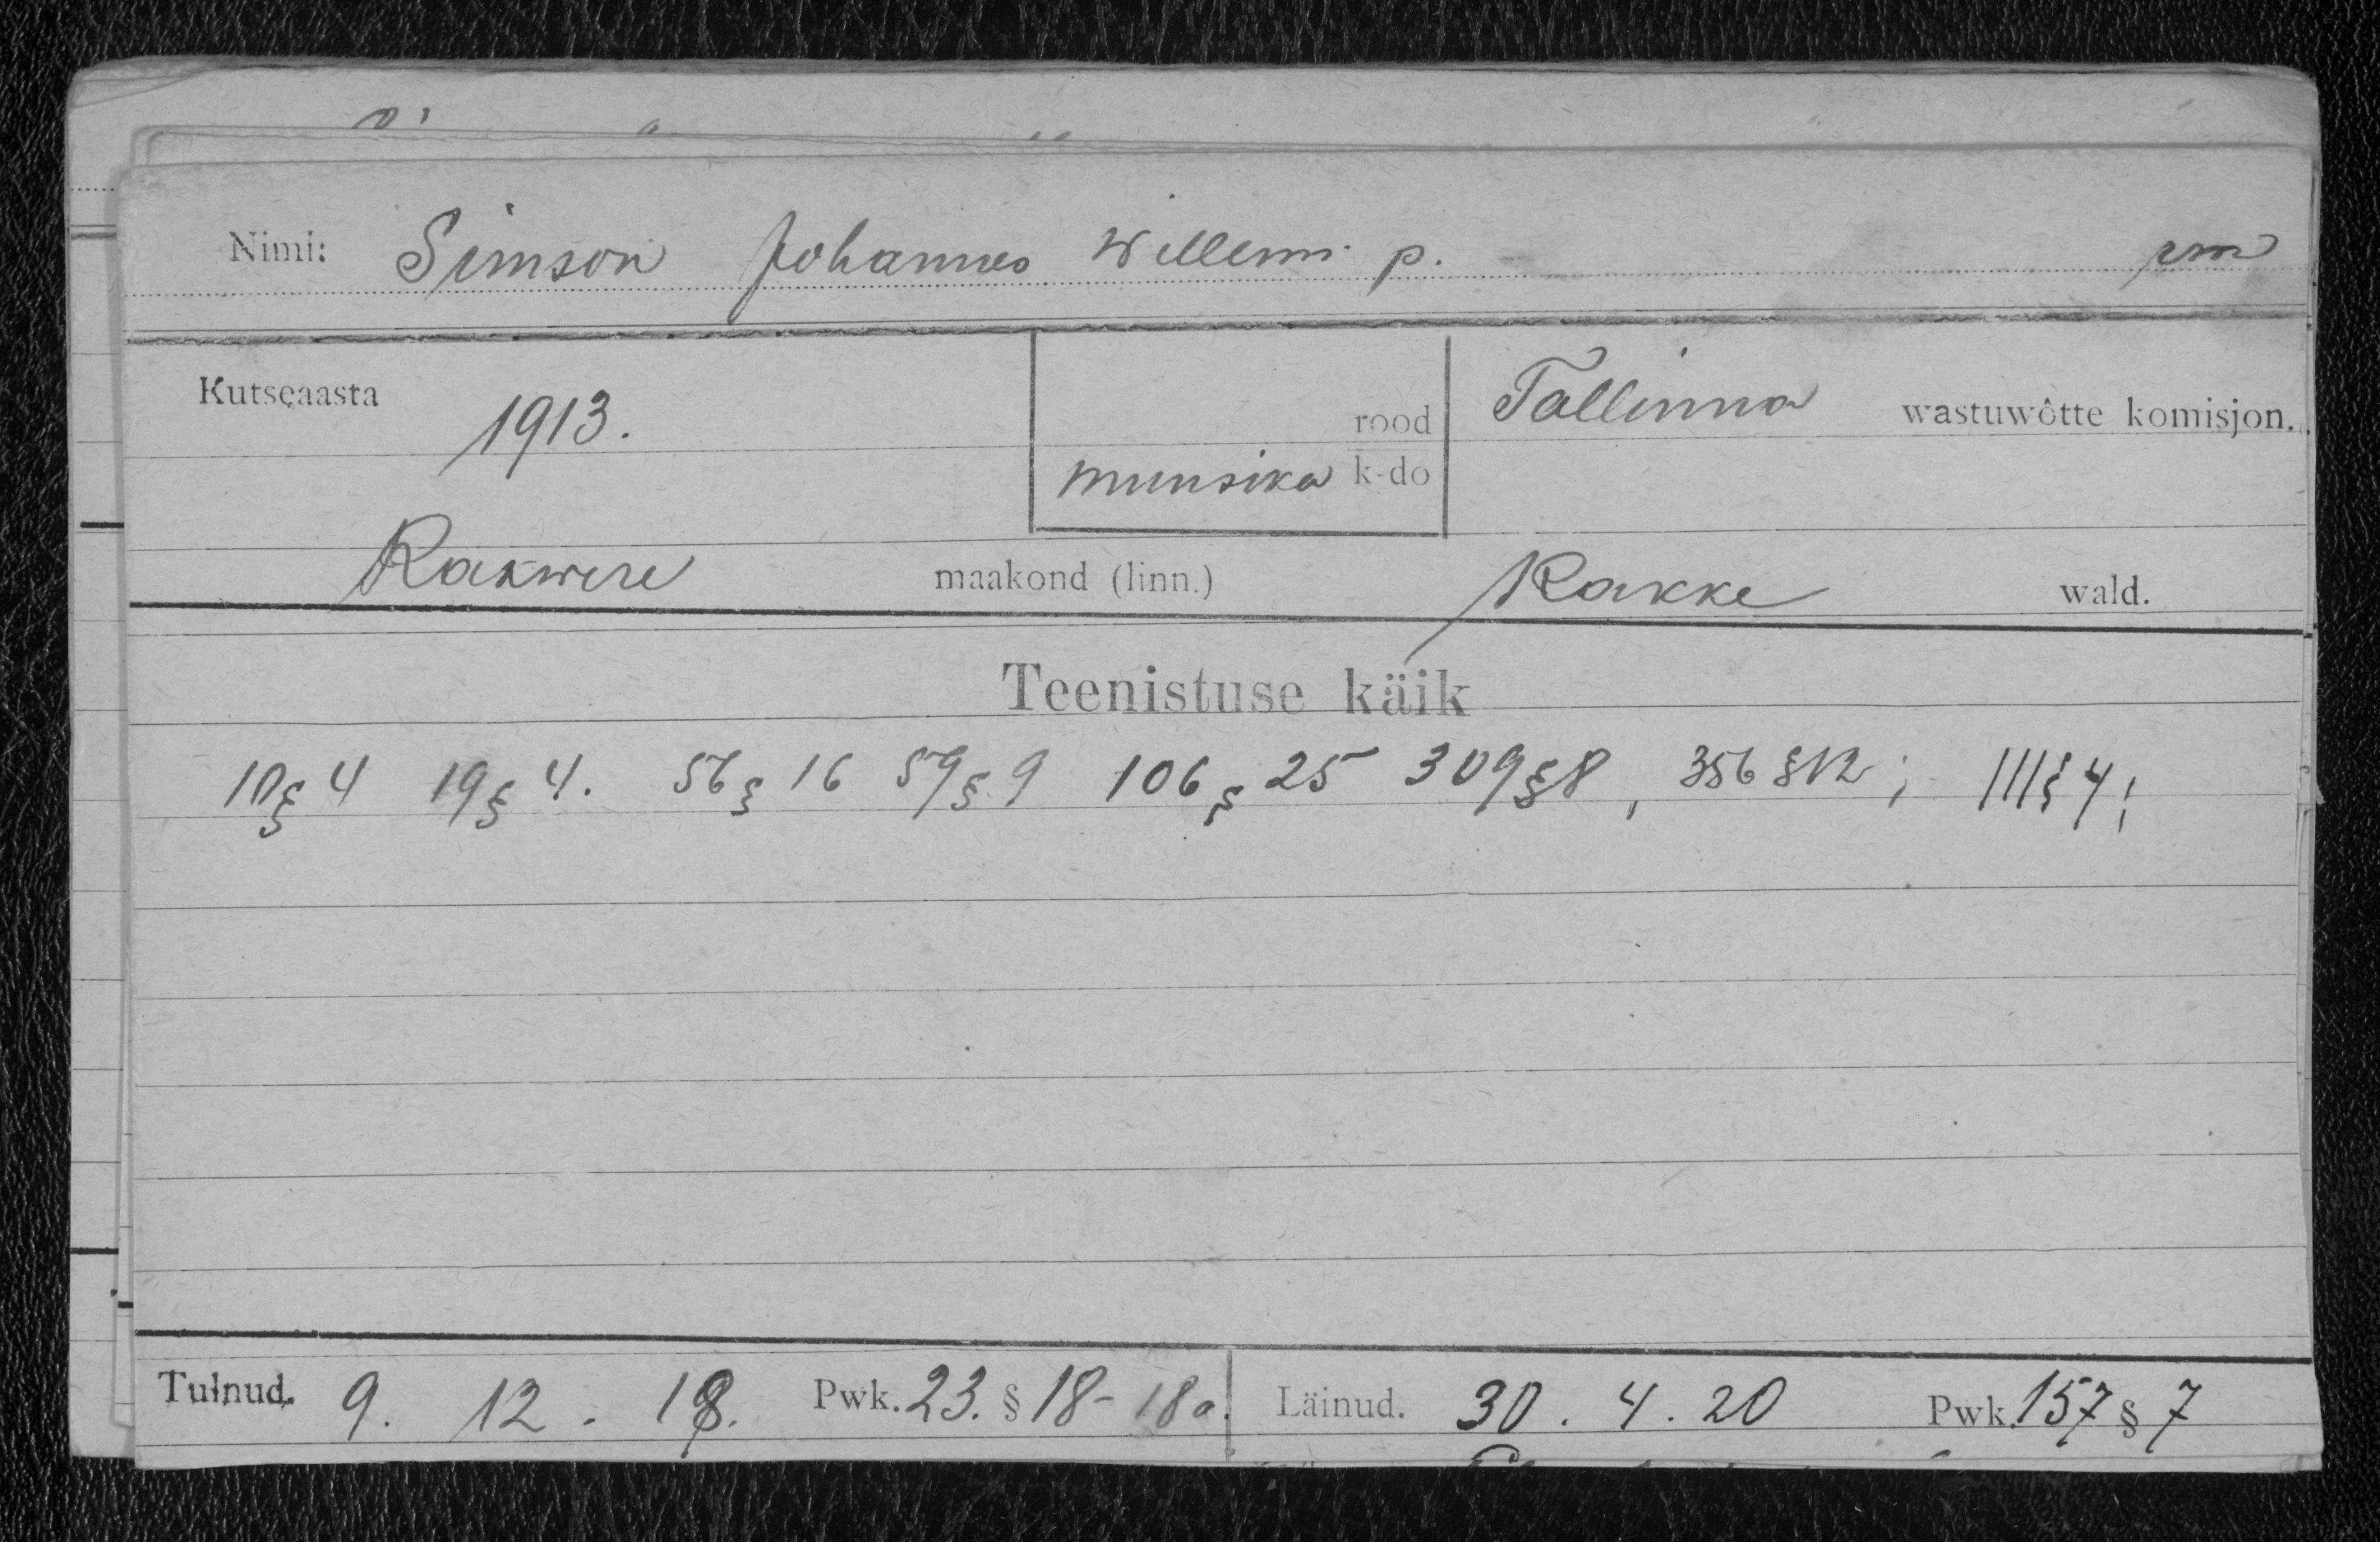 Nimi: Simson Johannes Willemi p. rm
Kutseaasta 1913.
rood
muusika k-do
Tallinna wastuwôtte komisjon.
Rakwere maakond (linn.) Rakke wald.
Teenistuse käik
10 § 4 19 § 4. 56 § 16 59 § 9 106 § 25 309 § 8, 356 § 12; 111 § 4;
Tulnud. 9. 12. 18. Pwk. 23. § 18 - 18a.
Läinud. 30. 4. 20 Pwk. 157 § 7